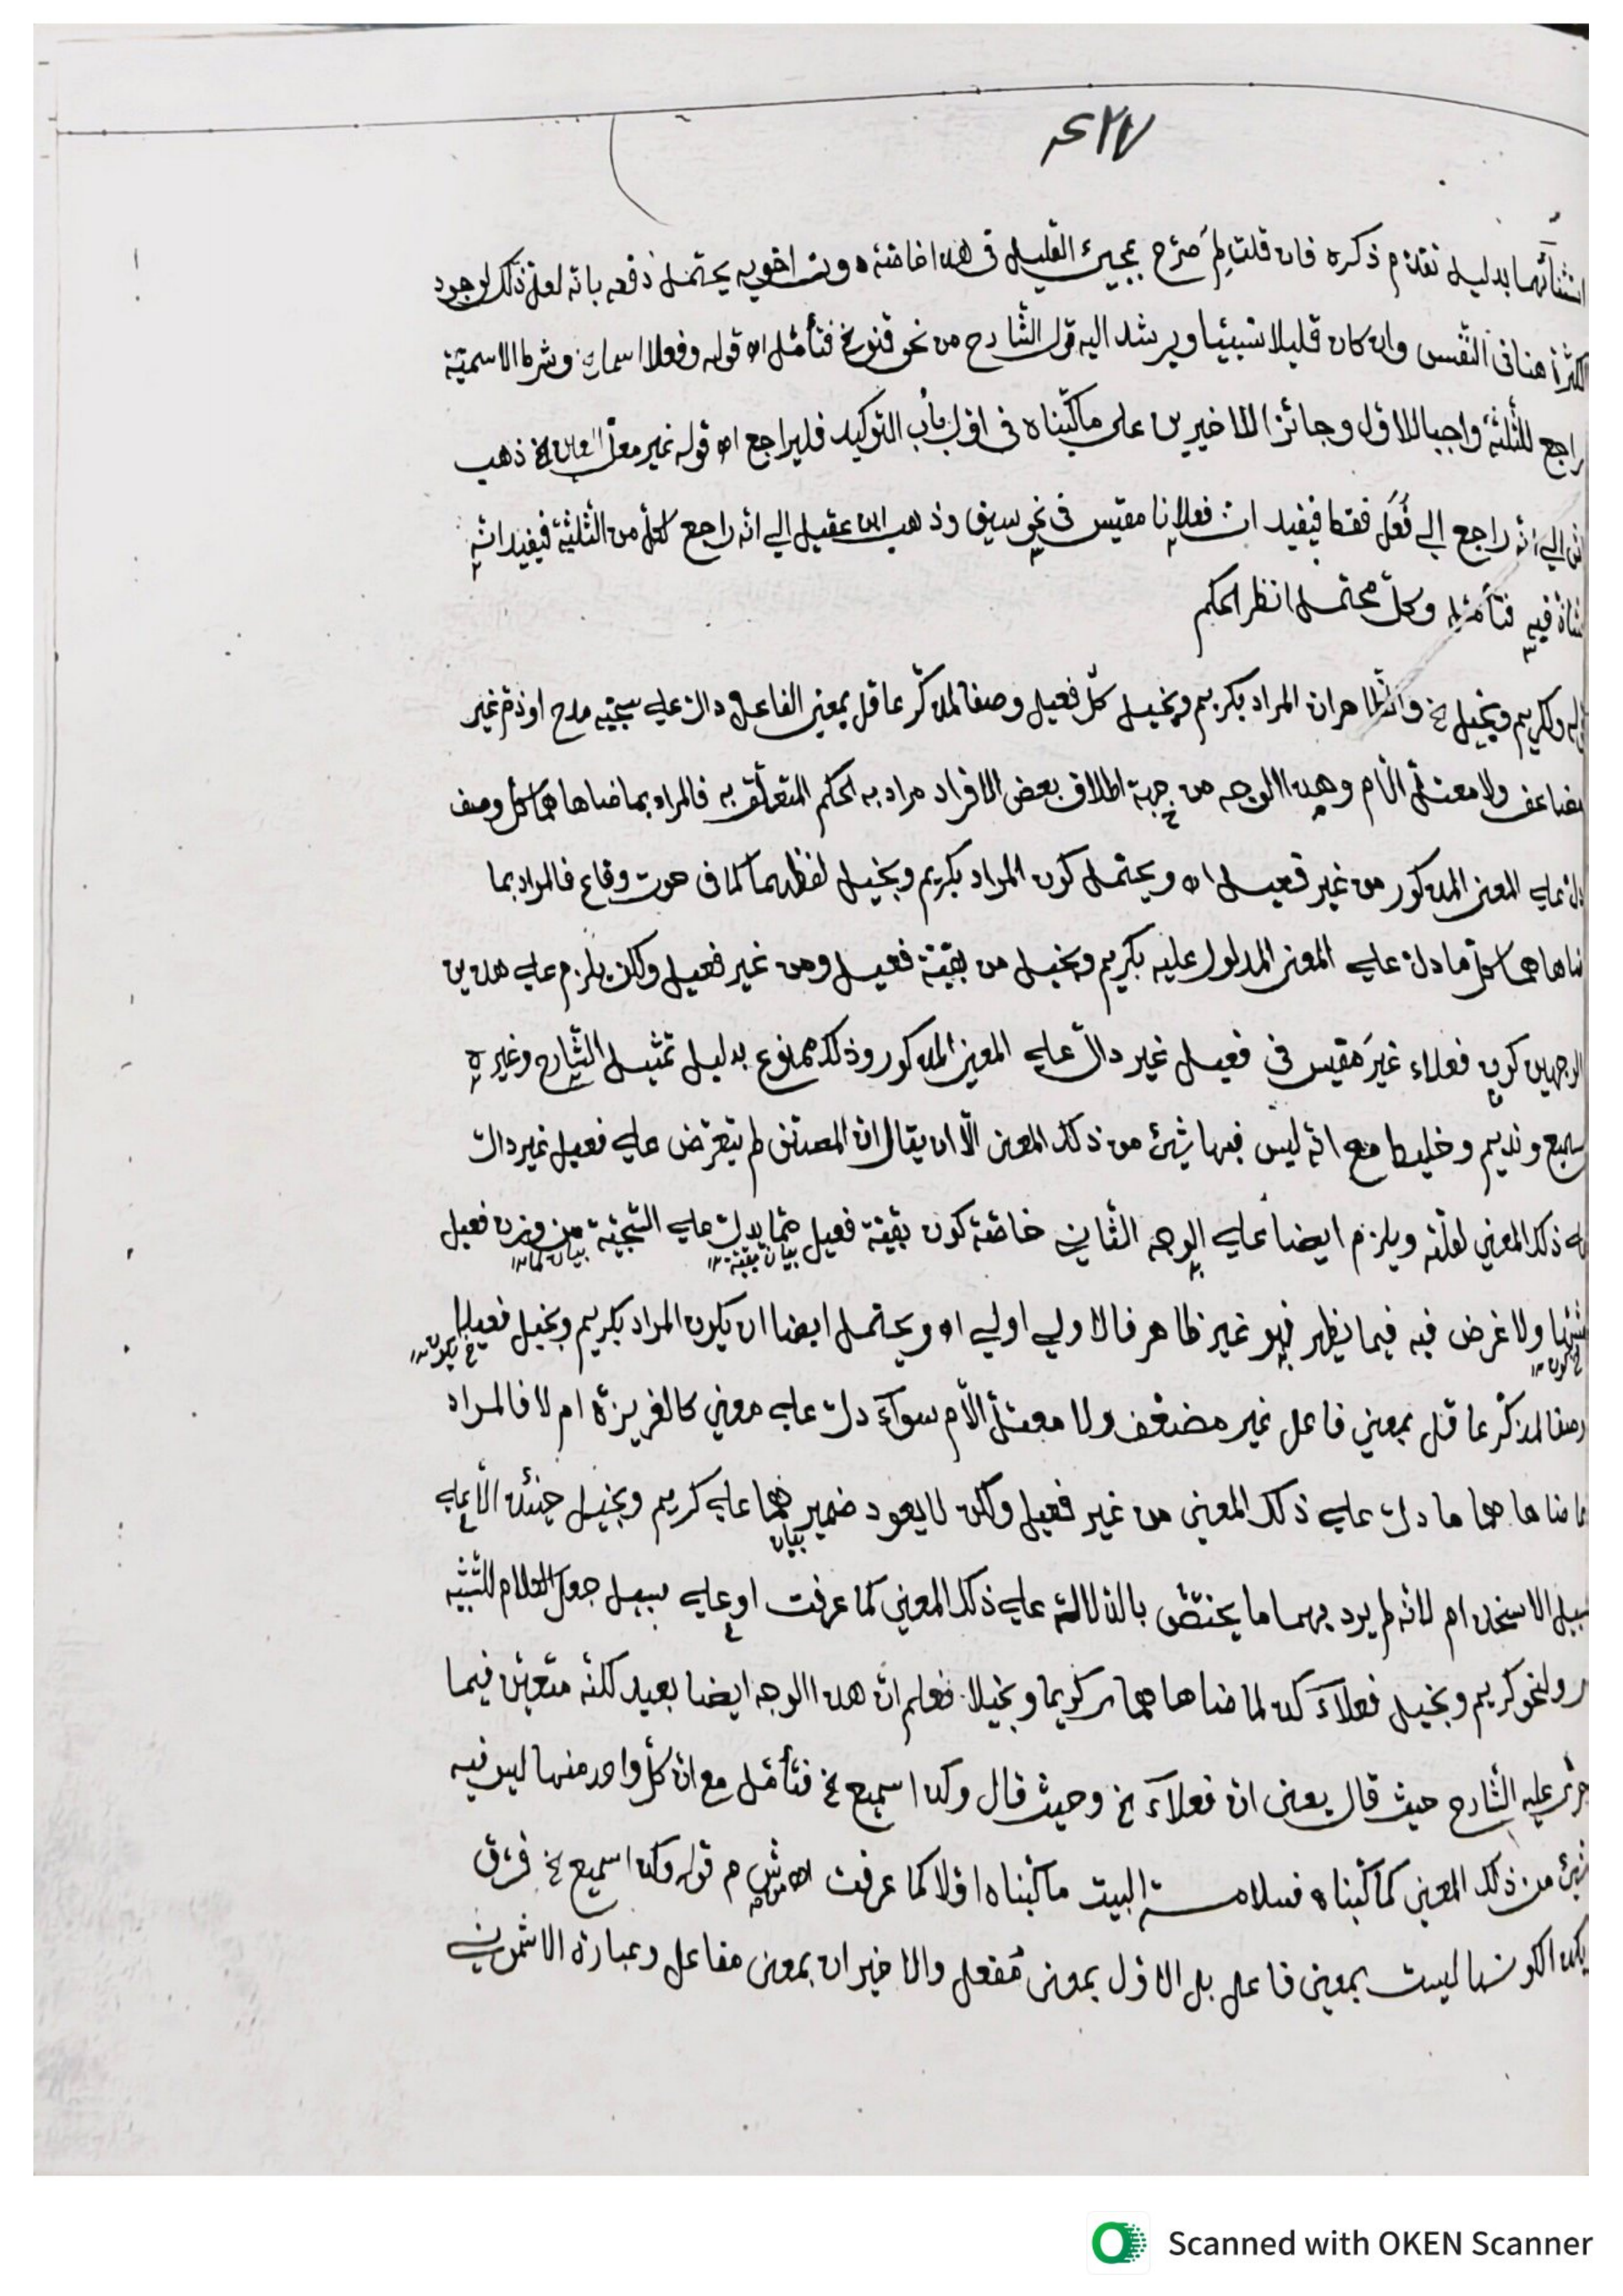 ٤٢٧
بدليل تقدّم ذكره فان قلت لم صرّح بمجيئ القليل في هذا خاصّة دون اخويه يحتمل دفعه بانه لعلّ ذلك لوجود
الكثرة هنا في النّفس وان كان قليلا نسبيّا ويرشد اليه قول الشّارح من نحو قنو نخ فتأمّل اه قوله وفعلا اسما نخ وشرط الاسميّة
راجع للثلثة واجبا للاوّل وجائزا للاخيرين على ما كتبناه في اوّل باب التوكيد فليراجع اه قوله غير معلّ العين نخ ذهب
الى انّه راجع إلى فُعَل فقط فيفيد انّ فعلانا مقيس في نحو سيف وذهب ابن عقيل الى انه راجع لكلّ من الثلثة فيفيد انّه
شاذّ فيه فتأمّله وكلّ محتمل انظر الحكم
ولكريم وبخيل نخ والظّاهر ان المراد بكريم وبخيل كلّ فعيل وصفا لمذكّر عاقل بمعنى الفاعل دالّ على سجيّة مدح او ذمّ غير
مضاعف ولا معتلّ الّام وهذا الوجه من جهة اطلاق بعض الافراد مراد به الحكم المتعلّق به فالمراد بما ضاهاهما كلّ وصف
دلّ على المعنى المذكور من غير فعيل اه ويحتمل كون المراد بكريم وبخيل لفظهما كما في حوت وقاع فالمراد بما
ضاهاهما كلّ ما دلّ على المعنى المدلول عليه بكريم وبخيل من بقيّة فعيل ومن غير فعيل ولكن يلزم على هذين
الوجهين كون فعلاء غيرَ مقيس في فعيل غير دالّ على المعنى المذكور وذلك ممنوع بدليل تمثيل الشّارح وغيره
بسميع ونديم وخليط مع انّه ليس فيها شيئ من ذلك المعنى الّا ان يقال انّ المصنّف لم يتعرّض على فعيل غير دالّ
على ذلك المعنى لقلّته ويلزم ايضا على الوجه الثّاني خاصّة كون بقيّة فعيل ممّا يدلّ على السّجيّة من وزن فعيل
بيان بقيّة بيان لما
ولا غرض فيه فيما يظهر فهو غير ظاهر فالاولى اولى اه ويحتمل ايضا ان يكون المراد بكريم وبخيل فعيلا
وصفا لمذكّر عاقل بمعنى فاعل غير مضعّف ولا معتلّ الّام سوآء دلّ على معنى كالغريزة ام لا فالمراد
بما ضاهاهما ما دلّ على ذلك المعنى من غير فعيل ولكن لا يعود ضمير هما على كريم وبخيل حينئذ الّا على
بيان
سبيل الاستخدام لانّه لم يرد بهما ما يختصّ بالدّلالة على ذلك المعنى كما عرفت او على سبيل جعل الكلام للتّشبيه
ولنحو كريم وبخيل فعلآء كذا لما ضاهاهما كريما وبخيلا فعلم انّ هذا الوجه ايضا بعيد لكنّه متعيّن فيما
جرى عليه الشّارح حيث قال يعنى ان فعلآء نخ وحيث قال وكذا سميع نخ فتأمّل مع انّ كلّ واحد منها ليس فيه
شيئ من ذلك المعنى كما كتبناه فسلامة البيت ما كتبناه اوّلا كما عرفت اه ش م قوله وكذا سميع نخ فرّق
ليست بمعنى فاعل بل الاوّل بمعنى مُفعل والاخيران بمعنى مفاعل وعبارة الاشمونى
Scanned with OKEN Scanner